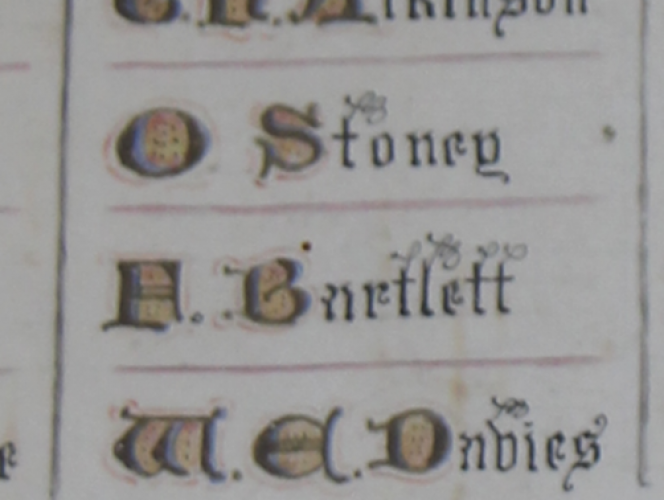 Atkinson
O Stoney
A. Bartlett
W. E. Davies